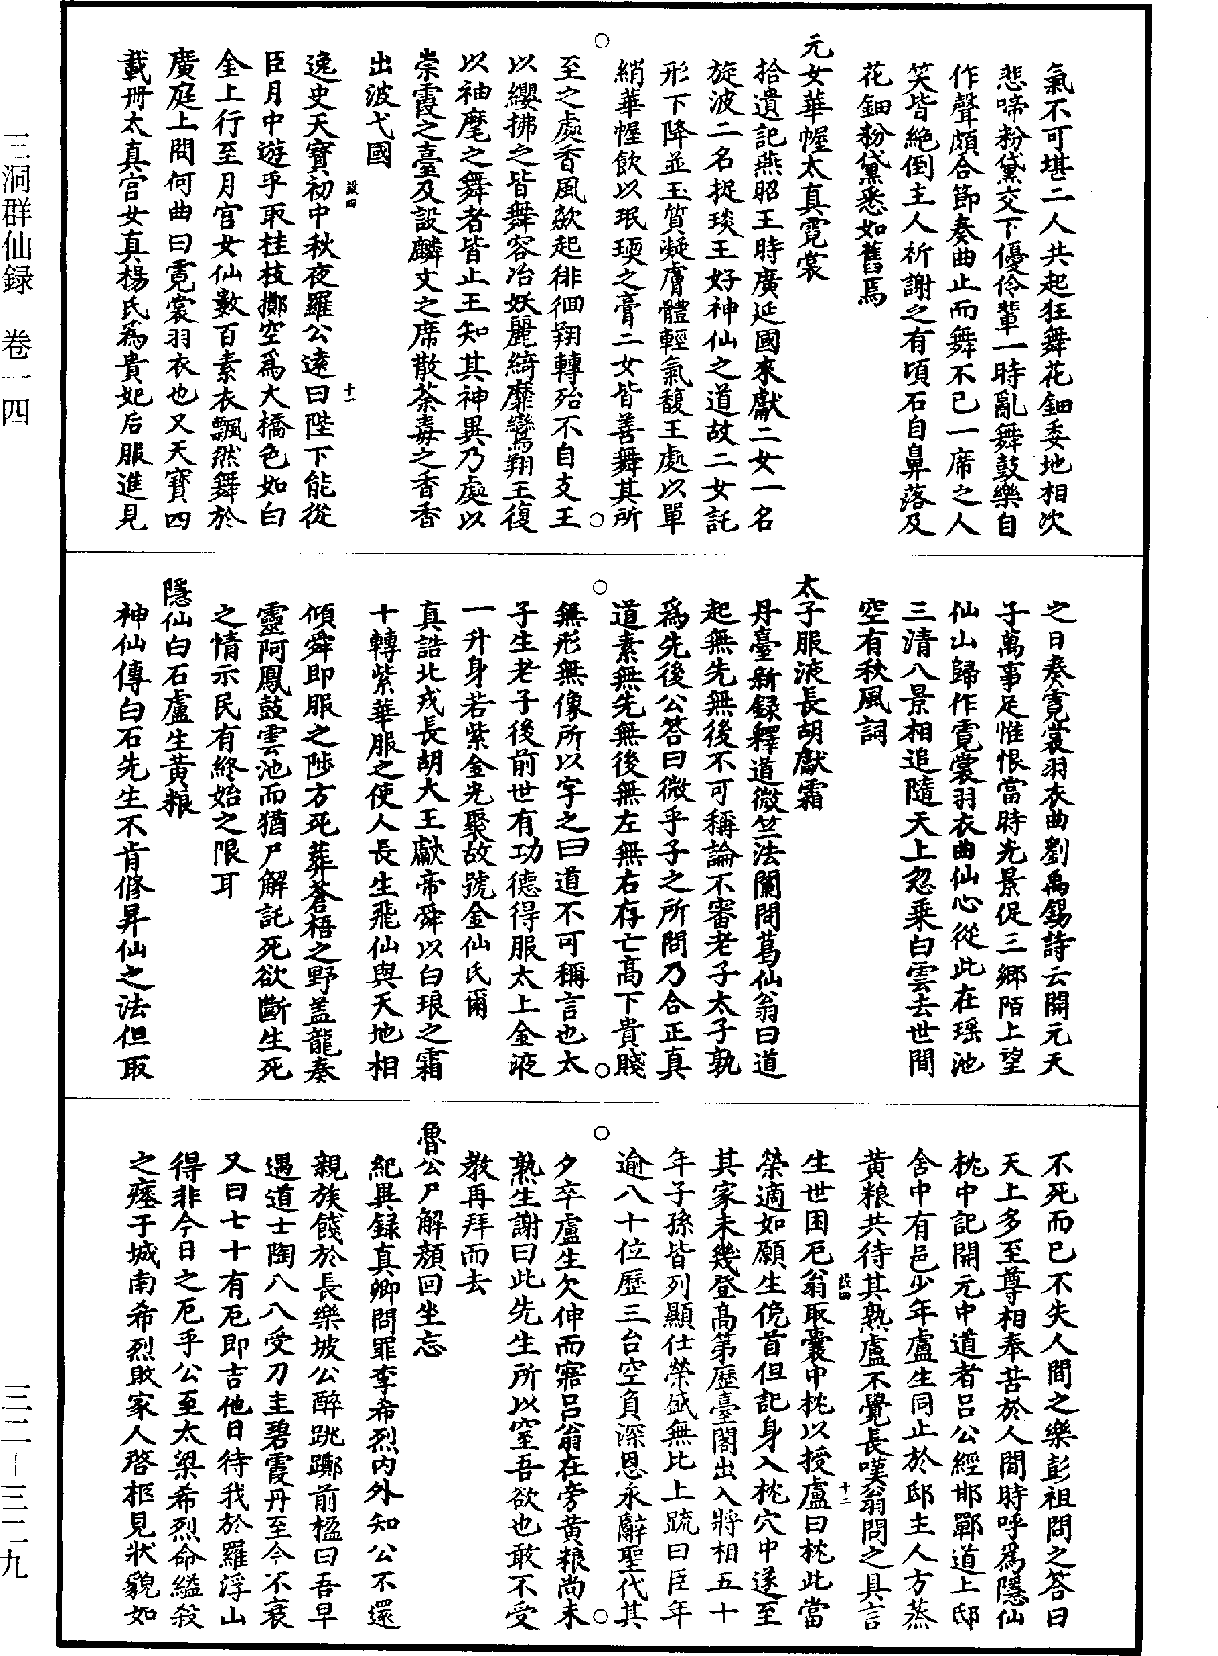 氣不可堪二人共起狂舞花鈿委地相次
悲啼粉黛交下優伶輩一時亂舞鼓樂自
作聲頗合節奏曲止而舞不已一席之人
笑皆絶倒主人祈謝之有頃石自鼻落及
花鈿粉黛悉如舊焉
元女華幄太真霓裳
拾遺記燕昭王時廣延國來獻二女一名
旋波二名提琰王好神仙之道故二女託
形下降並玉質凝膚體輕氣馥王處以單
綃華幄飲以珉瑌之膏二女皆善舞其所
至之處香風歘起徘徊翔轉殆不自支王
以纓拂之皆舞容冶妖麗綺靡鸞翔王復
以袖麾之舞者皆止王知其神異乃處以
崇霞之臺及設麟文之席散荼毒之香香
出波弋國
逸史天寶初中秋夜羅公遠曰陛下能從
臣月中遊乎取桂枝擲空爲大橋色如白
金上行至月宫女仙數百素衣飄然舞於
廣庭上問何曲曰霓裳羽衣也又天寶四
載冊太真宫女真楊氏爲貴妃后服進見
之日奏霓裳羽衣曲劉禹錫詩云開元天
子萬事足惟恨當時光景促三鄉陌上望
仙山歸作霓裳羽衣曲仙心從此在瑶池
三清八景相追隨天上忽乘白雲去世間
空有秋風詞
太子服液長胡獻霜
丹臺新録釋道微竺法蘭問葛仙翁曰道
起無先無後不可稱論不審老子太子孰
爲先後公答曰微乎子之所問乃合正真
道素無先無後無左無右存亡高下貴賤
無形無像所以字之曰道不可稱言也太
子生老子後前世有功德得服太上金液
一升身若紫金光聚故號金仙氏爾
真誥北戎長胡大王獻帝舜以白琅之霜
十轉紫華服之使人長生飛仙與天地相
傾舜即服之陟方死葬蒼梧之野蓋龍奏
靈阿鳳鼓雲池而猶尸解託死欲斷生死
之情示民有終始之限耳
隱仙白石盧生黄粮
神仙傳白石先生不肯修昇仙之法但取
不死而已不失人間之樂彭祖問之答曰
天上多至尊相奉苦於人間時呼爲隱仙
枕中記開元中道者吕公經邯鄲道上邸
舍中有邑少年盧生同止於邸主人方蒸
黄粮共待其熟盧不覺長嘆翁問之具言
生世困厄翁取囊中枕以授盧曰枕此當
榮適如願生俛首但記身入枕穴中遂至
其家未幾登高第歷臺閣出入將相五十
年子孫皆列顯仕榮盛無比上䟽曰臣年
逾八十位歷三台空負深恩永辭聖代其
夕卒盧生欠伸而寤吕翁在旁黄粮尚未
熟生謝曰此先生所以窒吾欲也敢不受
教再拜而去
魯公尸解顔回坐忘
紀異録真卿問罪李希烈内外知公不還
親族餞於長樂坡公醉跳躑前楹曰吾早
遇道士陶八八受刀圭碧霞丹至今不衰
又曰七十有厄即吉他日待我於羅浮山
得非今日之厄乎公至太梁希烈命縊殺
之瘞于城南希烈敗家人啓柩見狀貌如
三洞群仙録 卷一四
三二—三二九